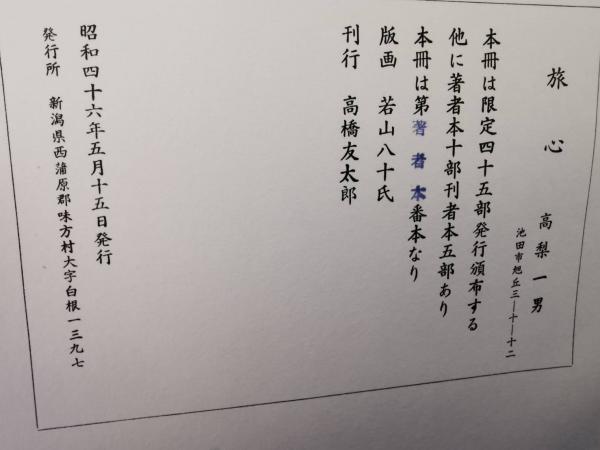 旅心
高梨一男
池田市旭丘三―十―十二
本冊は限定四十五部発行頒布する
他に著者本十部刊者本五部あり
本冊は第著者本番本なり
版画　若山八十氏
刊行　高橋友太郎
昭和四十六年五月十五日発行
発行所　新潟県西蒲原郡味方村大字白根一三九七